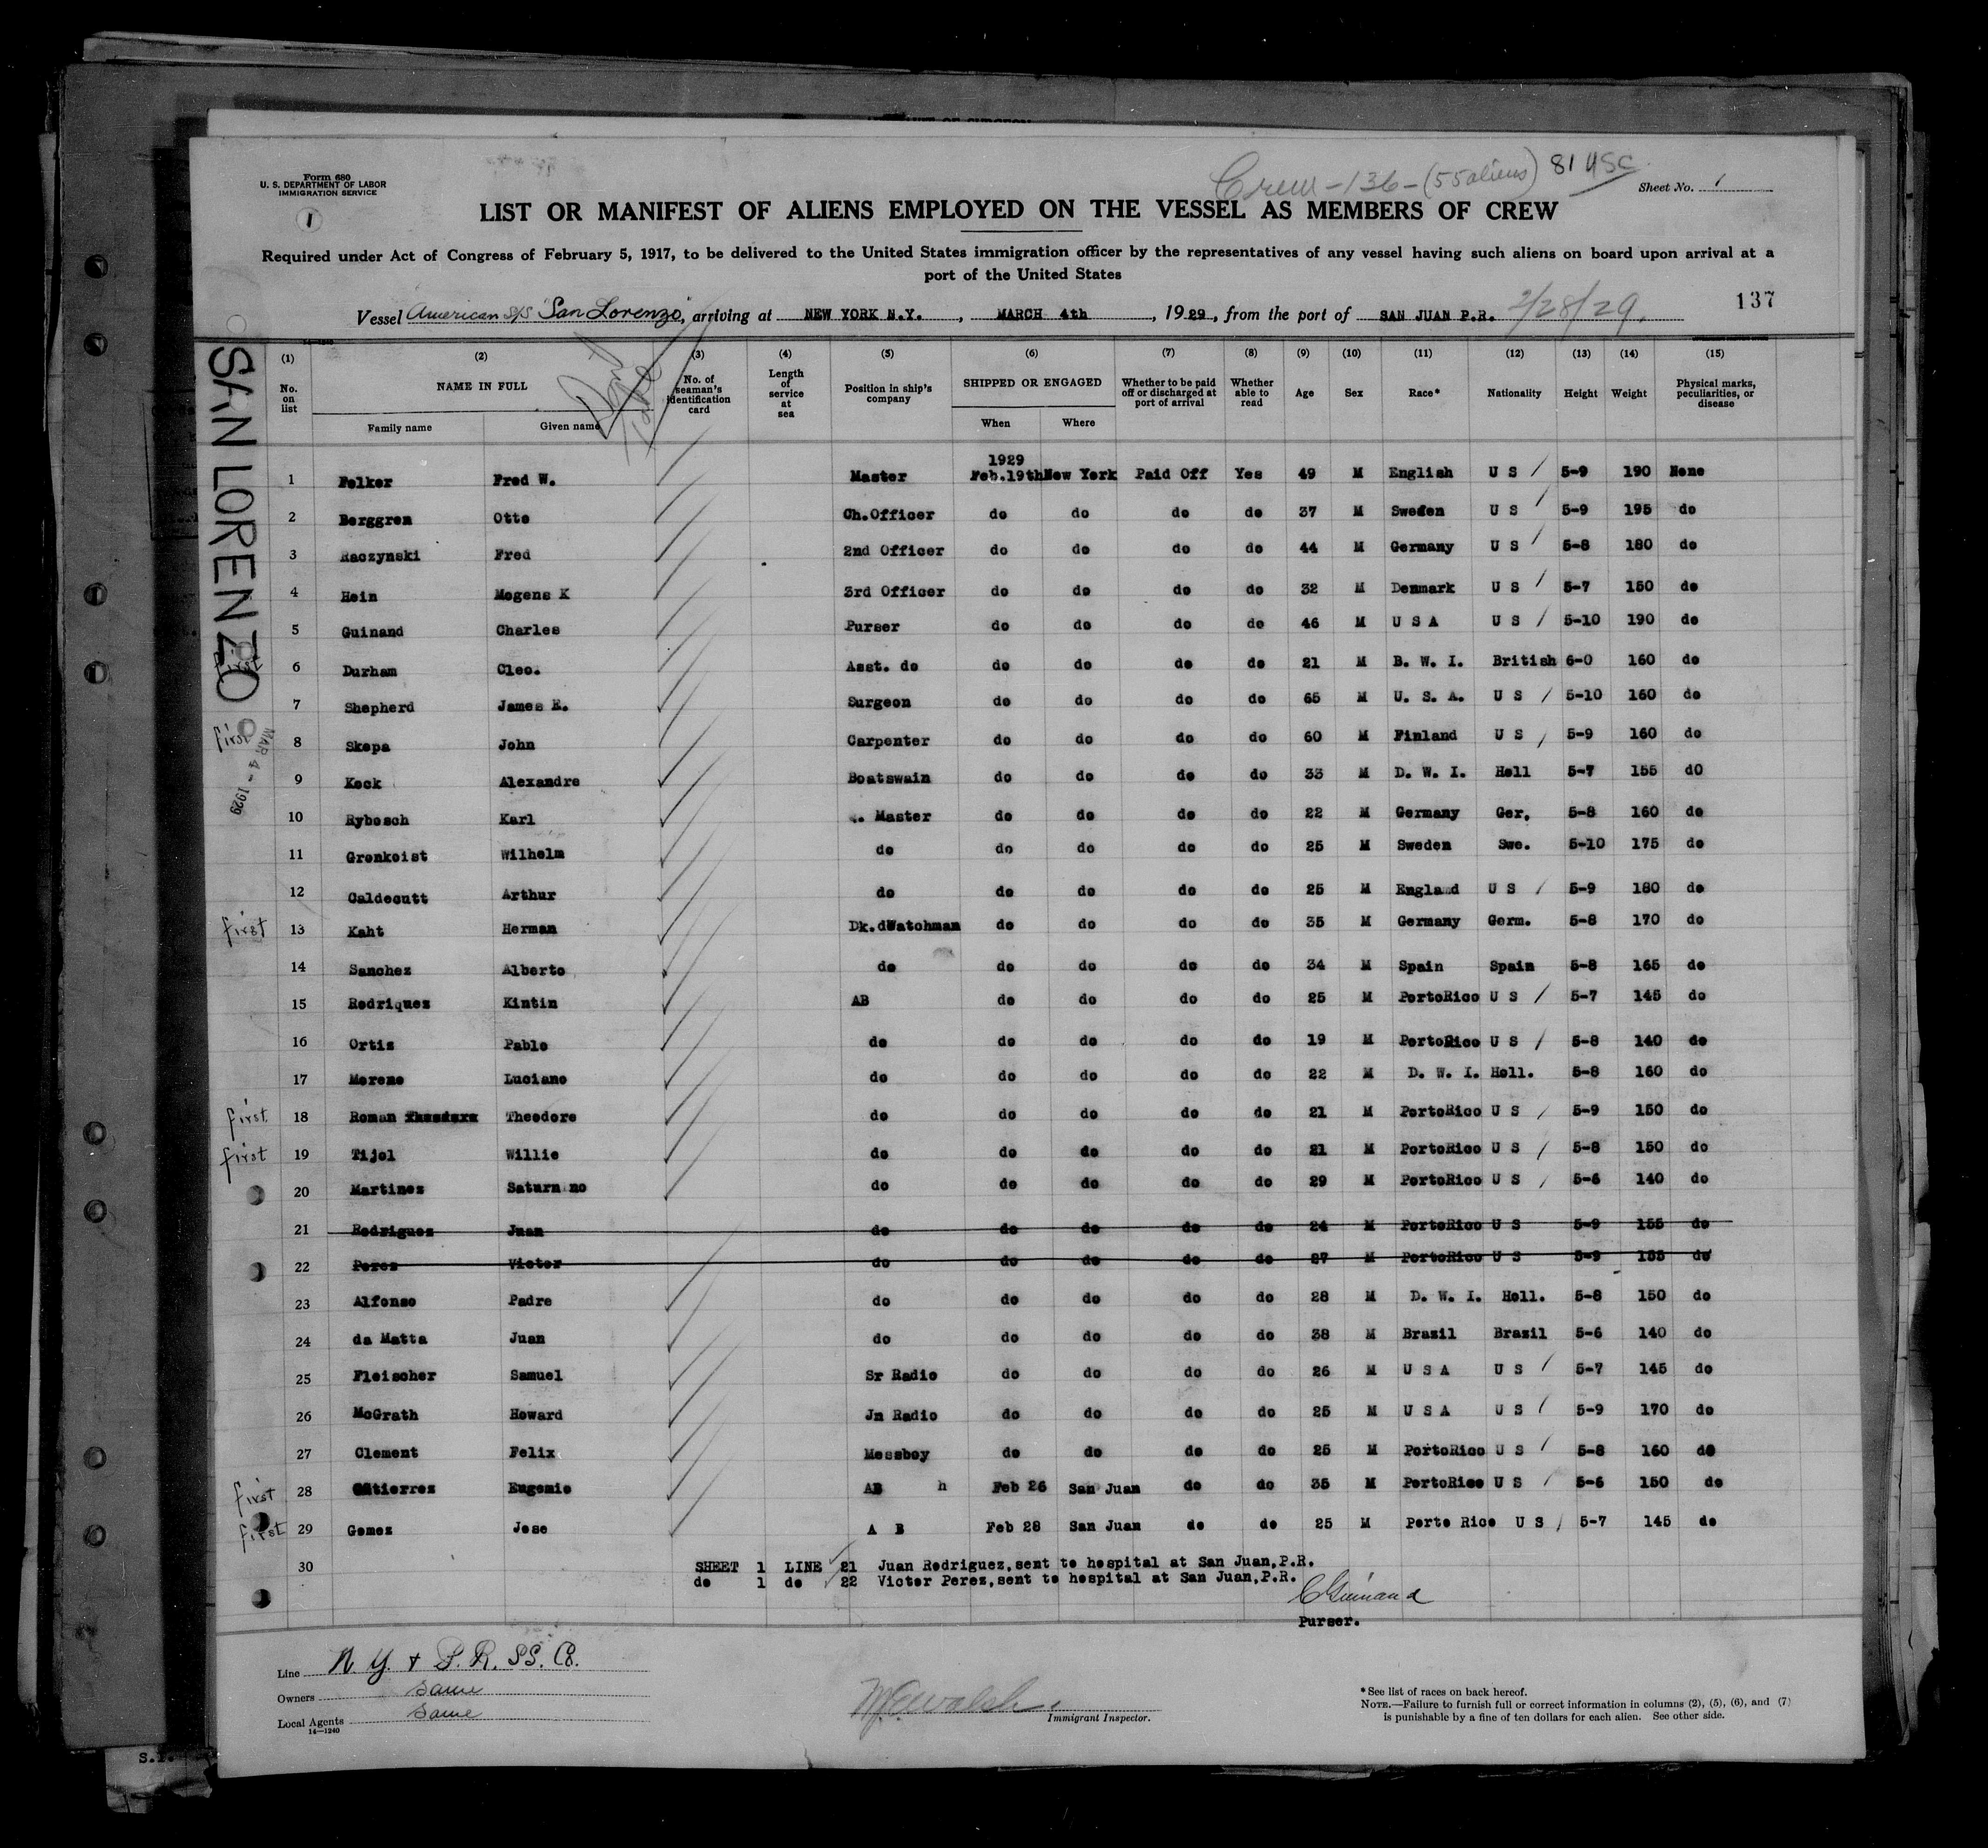 Form 680
U. S. DEPARTMENT OF LABOR
IMMIGRATION SERVICE
1
Crew - 136 - (55 aliens) 81 USC
Sheet No. 1
LIST OR MANIFEST OF ALIENS EMPLOYED ON THE VESSEL AS MEMBERS OF CREW
Required under Act of Congress of February 5, 1917, to be delivered to the United States immigration officer by the representatives of any vessel having such aliens on board upon arrival at a
port of the United States
137
Vessel American S/S "San Lorenzo", arriving at NEW YORK N.Y., MARCH 4th, 1929, from the port of SAN JUAN P.R. 2/28/29.
SAN LORENZO
MAR 4 - 1929
(1) (2) (3) (4) (5) (6) (7) (8) (9) (10) (11) (12) (13) (14) (15)
No. on list NAME IN FULL Family name Given name No. of seaman's identification card Length of service at sea Position in ship's company SHIPPED OR ENGAGED When Where Whether to be paid off or discharged at port of arrival Whether able to read Age Sex Race* Nationality Height Weight Physical marks, peculiarities, or disease
1929
1 Felker Fred W. Master Feb.19th New York Paid Off Yes 49 M English U S / 5-9 190 None
2 Berggren Otto Ch.Officer do do do do 37 M Sweden U S / 5-9 195 do
3 Raczynski Fred 2nd Officer do do do do 44 M Germany U S / 5-8 180 do
4 Hein Mogens K 3rd Officer do do do do 32 M Denmark U S / 5-7 150 do
5 Guinand Charles Purser do do do do 46 M U S A U S / 5-10 190 do
first 6 Durham Cleo. Asst. do do do do do 21 M B. W. I. British 6-0 160 do
7 Shepherd James E. Surgeon do do do do 65 M U. S. A. U S / 5-10 160 do
first 8 Skepa John Carpenter do do do do 60 M Finland U S / 5-9 160 do
9 Kock Alexandre Boatswain do do do do 33 M D. W. I. Holl 5-7 155 dO
10 Rybosch Karl . Master do do do do 22 M Germany Ger. 5-8 160 do
11 Gronkoist Wilhelm do do do do do 25 M Sweden Swe. 5-10 175 do
12 Caldecutt Arthur do do do do do 25 M England U S / 5-9 180 do
first 13 Kaht Herman Dk.dWatchman do do do do 35 M Germany Germ. 5-8 170 do
14 Sanchez Alberto do do do do do 34 M Spain Spain 5-8 165 do
15 Rodriquez Kintin AB do do do do 25 M PortoRico U S / 5-7 145 do
16 Ortiz Pablo do do do do do 19 M PortoRico U S / 5-8 140 do
17 Moreno Luciano do do do do do 22 M D. W. I. Holl. 5-8 160 do
first 18 Roman Theodore do do do do do 21 M PortoRico U S / 5-9 150 do
first 19 Tijol Willie do do do do do 21 M PortoRico U S / 5-8 150 do
20 Martinez Saturn no do do do do do 29 M PortoRico U S / 5-6 140 do
21 Rodriguez Juan do do do do do 24 M PortoRico U S 5-9 155 do
22 Perez Victor do do do do do 27 M PortoRico U S 5-9 155 do
23 Alfonso Padre do do do do do 28 M D. W. I. Holl. 5-8 150 do
24 da Matta Juan do do do do do 38 M Brazil Brazil 5-6 140 do
25 Fleischer Samuel Sr Radio do do do do 26 M U S A U S / 5-7 145 do
26 McGrath Howard Jn Radio do do do do 25 M U S A U S / 5-9 170 do
27 Clement Felix Messboy do do do do 25 M PortoRico U S / 5-8 160 do
first 28 Gutierrez Eugenio AB h Feb 26 San Juan do do 35 M PortoRico U S / 5-6 150 do
first 29 Gomez Jose A B Feb 28 San Juan do do 25 M Porto Rico U S / 5-7 145 do
30 SHEET 1 LINE 21 Juan Rodriguez,sent to hospital at San Juan,P.R.
do 1 do 22 Victor Perez,sent to hospital at San Juan,P.R.
C Guinand
Purser.
Line N. Y. + P. R. SS. Co.
Owners same
Local Agents same
14—1240
Immigrant Inspector.
*See list of races on back hereof.
NOTE.—Failure to furnish full or correct information in columns (2), (5), (6), and (7)
is punishable by a fine of ten dollars for each alien. See other side.